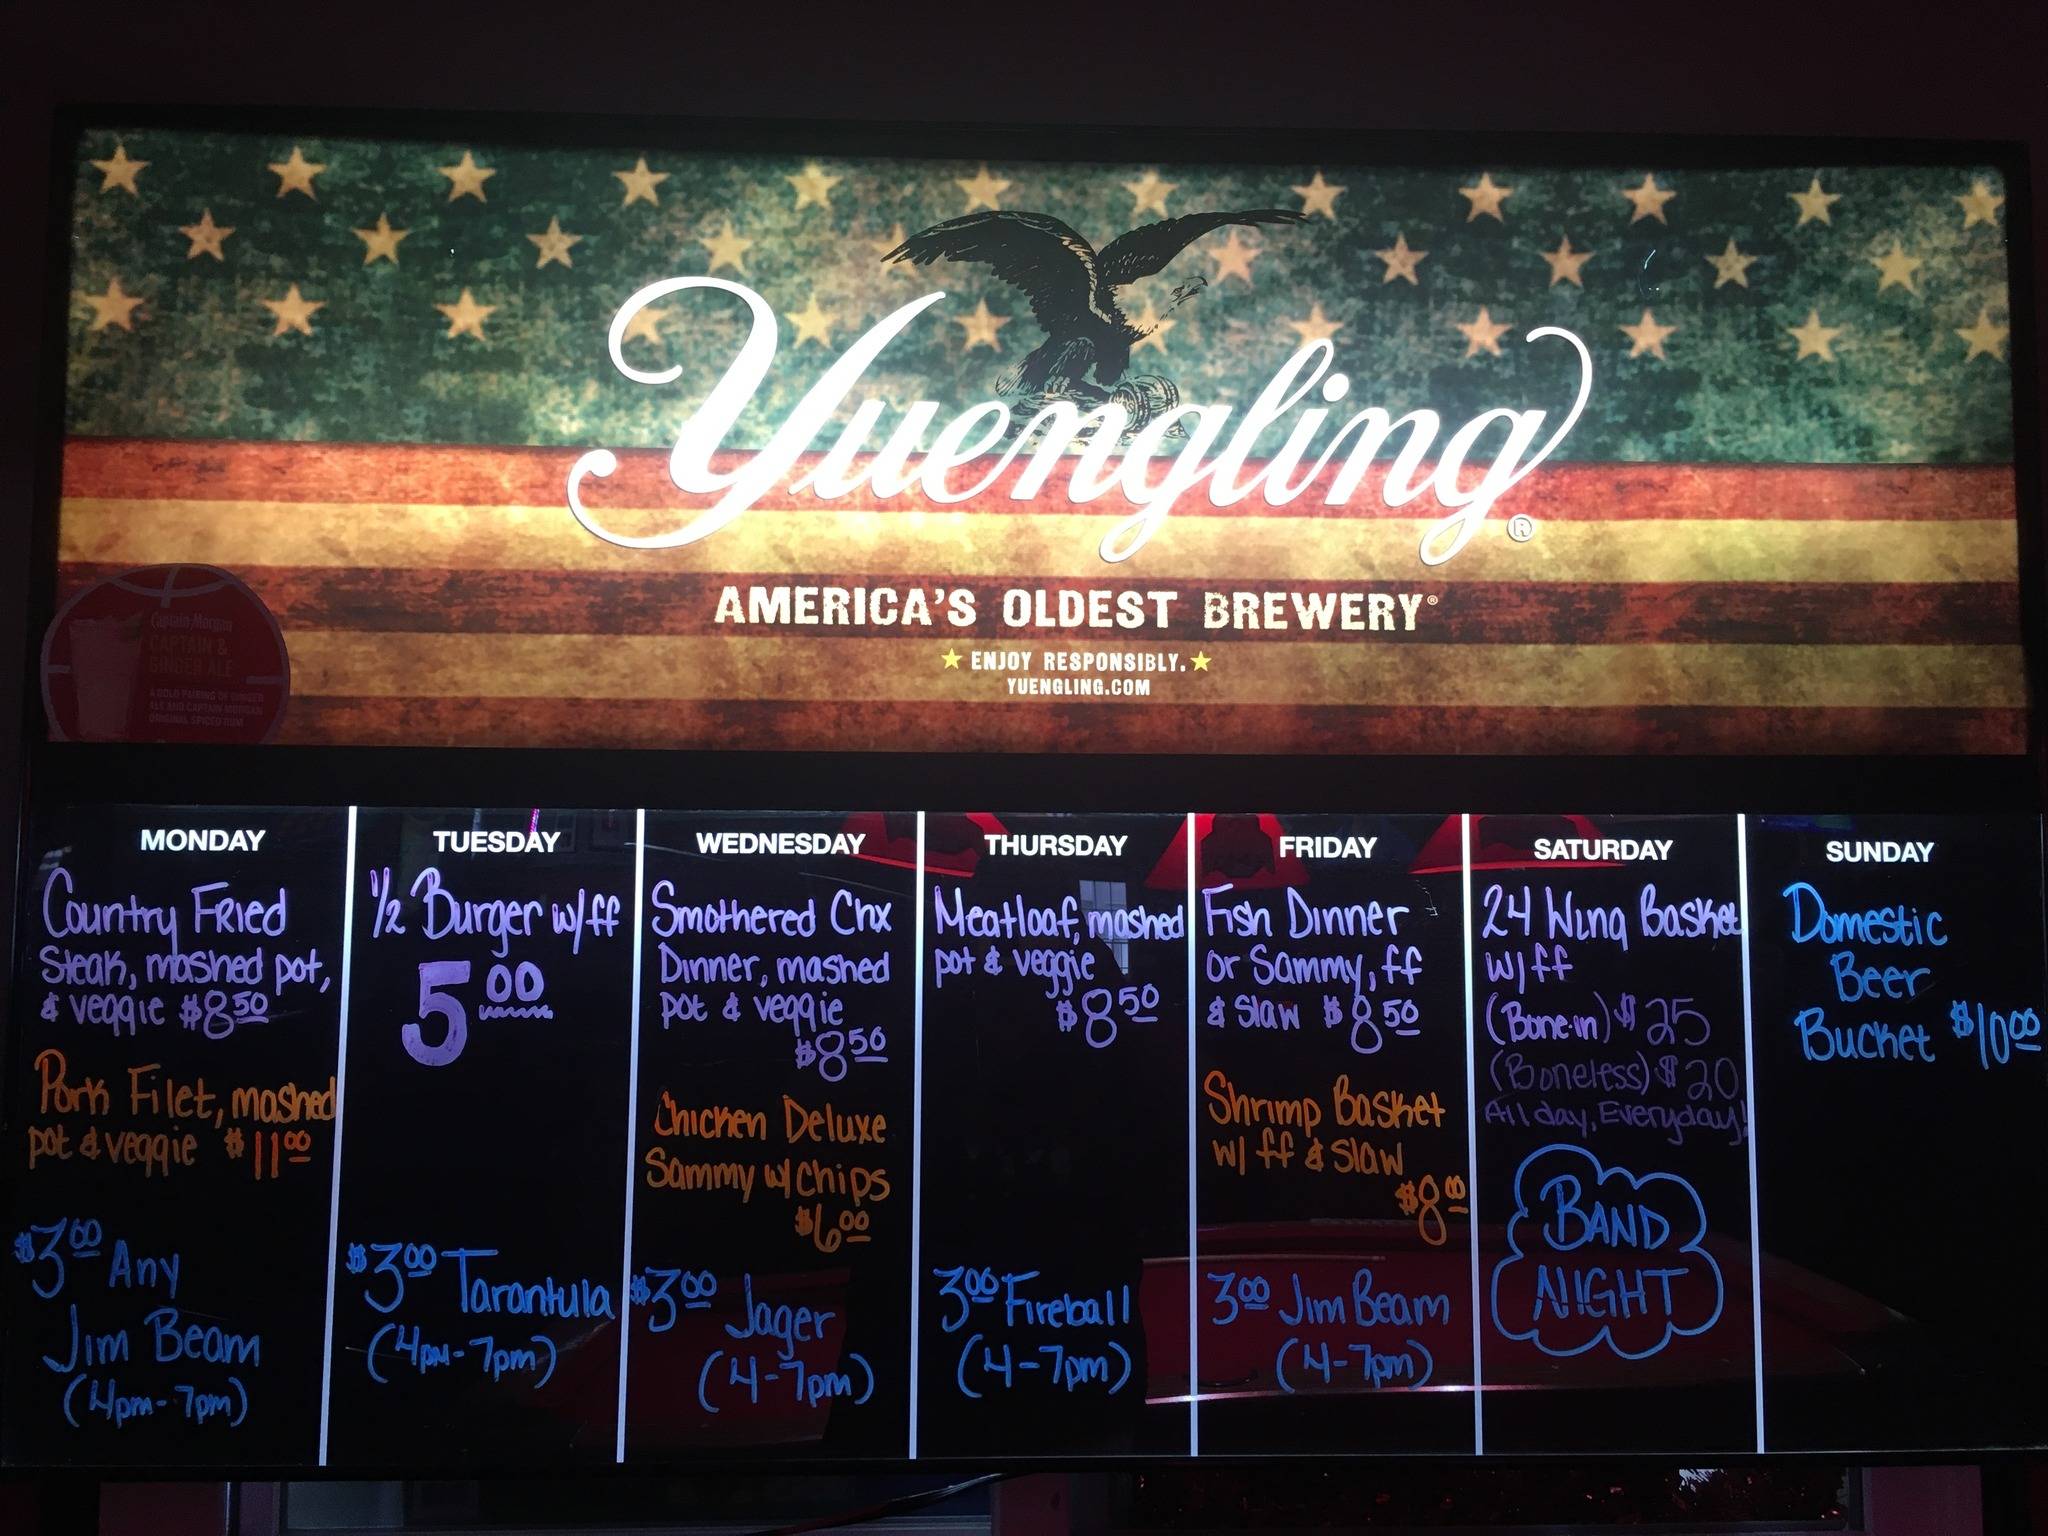 Yuengling®
AMERICA'S OLDEST BREWERY®
★ ENJOY RESPONSIBLY. ★
YUENGLING.COM
Captain Morgan
CAPTAIN &
GINGER ALE
A BOLD PAIRING OF GINGER
ALE AND CAPTAIN MORGAN
ORIGINAL SPICED RUM
MONDAY
Country Fried
Steak, mashed pot,
& veggie $8.50
Pork Filet, mashed
pot & veggie $11.00
$3.00 Any
Jim Beam
(4pm-7pm)
TUESDAY
1/2 Burger w/ff
5.00
$3.00 Tarantula
(4pm-7pm)
WEDNESDAY
Smothered Chx
Dinner, mashed
pot & veggie
$8.50
Chicken Deluxe
Sammy w/chips
$6.00
$3.00 Jager
(4-7pm)
THURSDAY
Meatloaf, mashed
pot & veggie
$8.50
3.00 Fireball
(4-7pm)
FRIDAY
Fish Dinner
or Sammy, ff
& slaw $8.50
Shrimp Basket
w/ ff & slaw
$8.00
3.00 Jim Beam
(4-7pm)
SATURDAY
24 Wing Basket
w/ff
(Bone-in) $25
(Boneless) $20
All day, Everyday!
BAND
NIGHT
SUNDAY
Domestic
Beer
Bucket $10.00